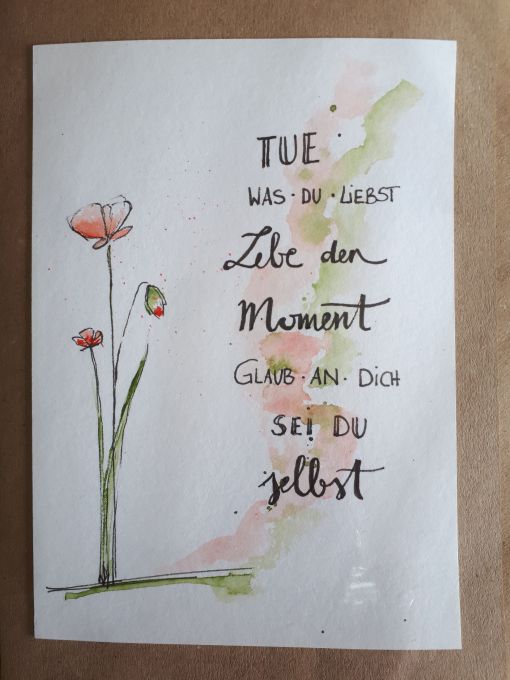 TUE
WAS · DU · LiEBST
Lebe den
Moment
GLAUB · AN · DiCH
SEi DU
selbst